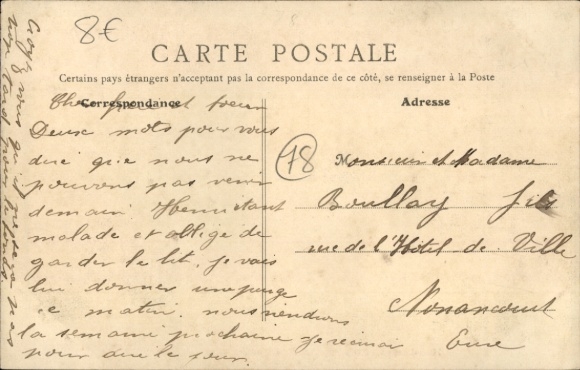 8€
CARTE POSTALE
Certains pays étrangers n'acceptent pas la correspondance de ce côté, se renseigner à la Poste
Correspondance
Adresse
Cher frère et sœur
Deux mots pour vous
dire que nous ne
pouvons pas venir
demain Henri étant
malade et obligé de
garder le lit. je vais
lui donner une purge
ce matin. nous viendrons
la semaine prochaine
pour que le jour.
78
Monsieur et Madame
Boullay fils
rue de l'Hôtel de Ville
Nonancourt
Eure